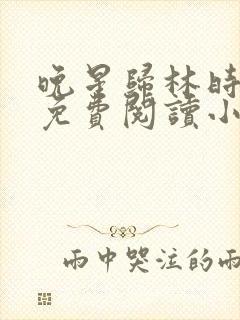 晚星歸林時
免費閱讀小
雨中哭泣的雨